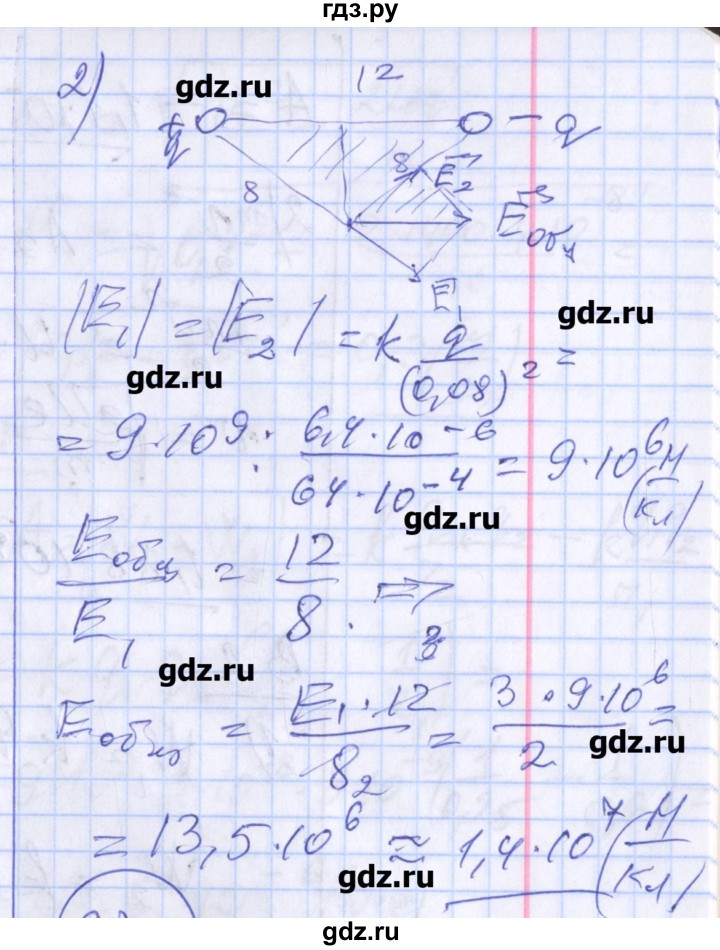 гдз.ру
2)
gdz.ru
12
+q
- q
8
8
E₂
Eобщ
E₁
|E₁| = |E₂| = k q/(0,08)² =
gdz.ru
gdz.ru
= 9·10⁹ · 6,4·10⁻⁶/64·10⁻⁴ = 9·10⁶ (Н/Кл)
gdz.ru
Eобщ/E₁ = 12/8 · ⇒
gdz.ru
Eобщ = E₁·12 3/8 2 = 3·9·10⁶/2 =
gdz.ru
= 13,5·10⁶ ≈ 1,4·10⁷ (Н/Кл)
gdz.ru
гдз.ру